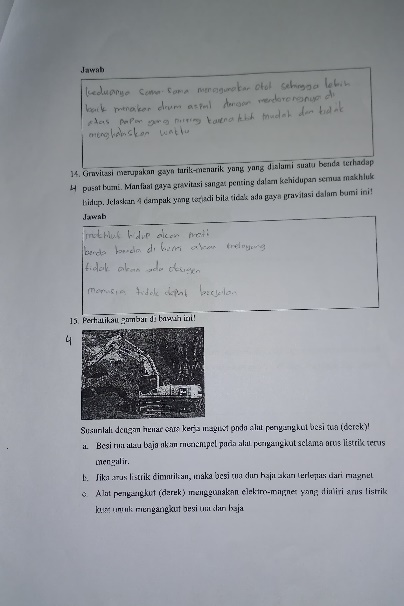 Jawab
keduanya sama-sama menggunakan otot sehingga lebih
baik menaikan drum aspal dengan mendorongnya di
atas papan yang miring karena lebih mudah dan tidak
menghabiskan waktu
14. Gravitasi merupakan gaya tarik-menarik yang yang dialami suatu benda terhadap
4 pusat bumi. Manfaat gaya gravitasi sangat penting dalam kehidupan semua makhluk
hidup. Jelaskan 4 dampak yang terjadi bila tidak ada gaya gravitasi dalam bumi ini!
Jawab
makhluk hidup akan mati
benda benda di bumi akan melayang
tidak akan ada
manusia tidak dapat berjalan
15. Perhatikan gambar di bawah ini!
4
Susunlah dengan benar cara kerja magnet pada alat pengangkut besi tua (derek)!
a. Besi tua atau baja akan menempel pada alat pengangkut selama arus listrik terus
mengalir.
b. Jika arus listrik dimatikan, maka besi tua dan baja akan terlepas dari magnet
c. Alat pengangkut (derek) menggunakan elektro-magnet yang dialiri arus listrik
kuat untuk mengangkut besi tua dan baja